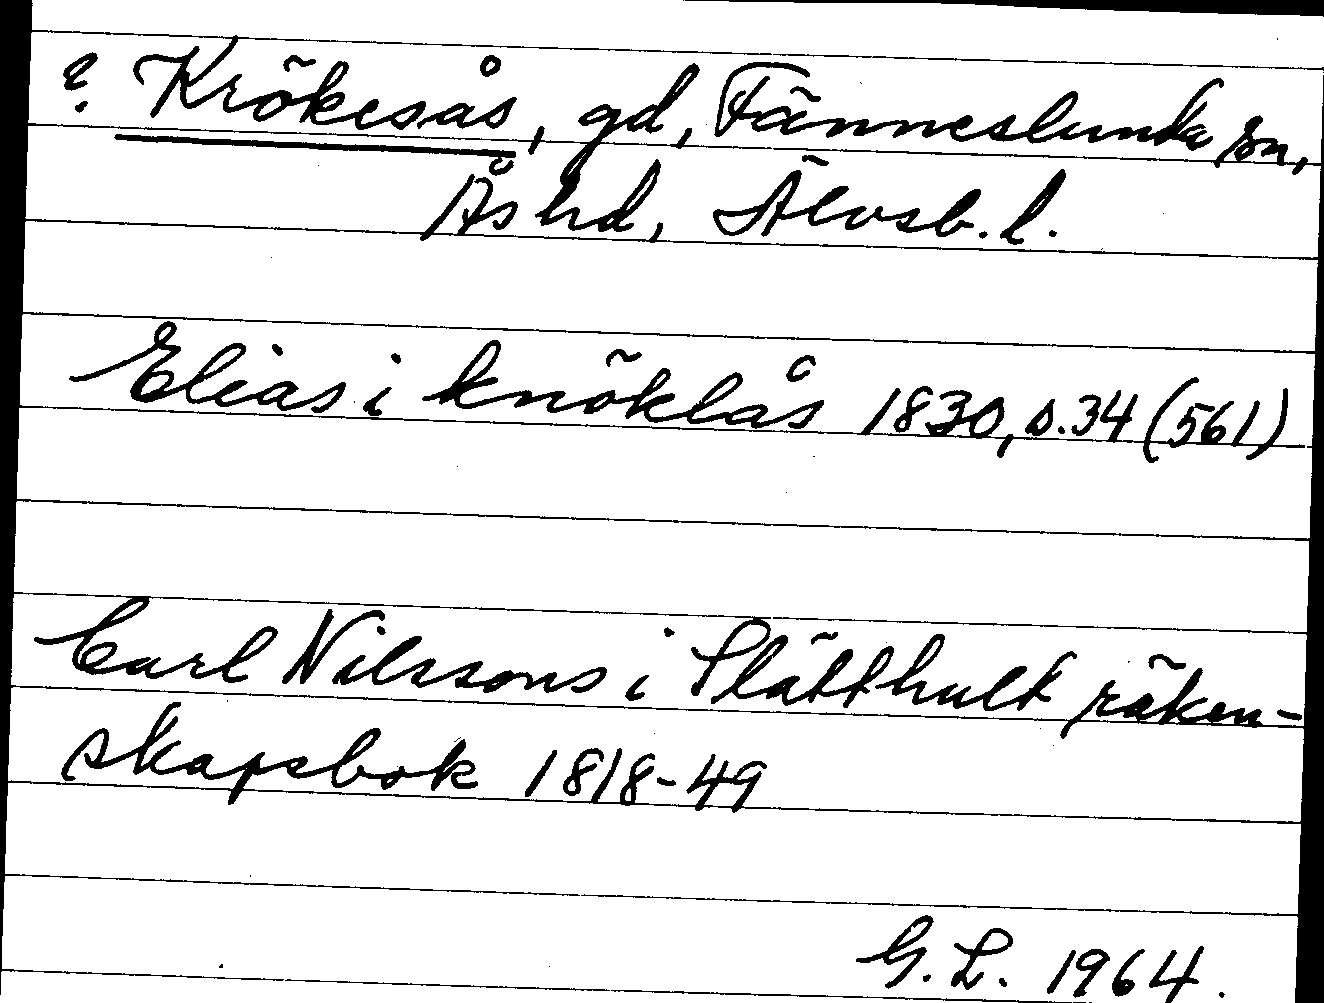 ? Krökesås, gd, Fänneslunda sn,
Ås hd, Älvsb. l.
Elias i knöklås 1830, s. 34 (561)
Carl Nilssons i Slätthult räken-
skapsbok 1818-49
G. L. 1964.